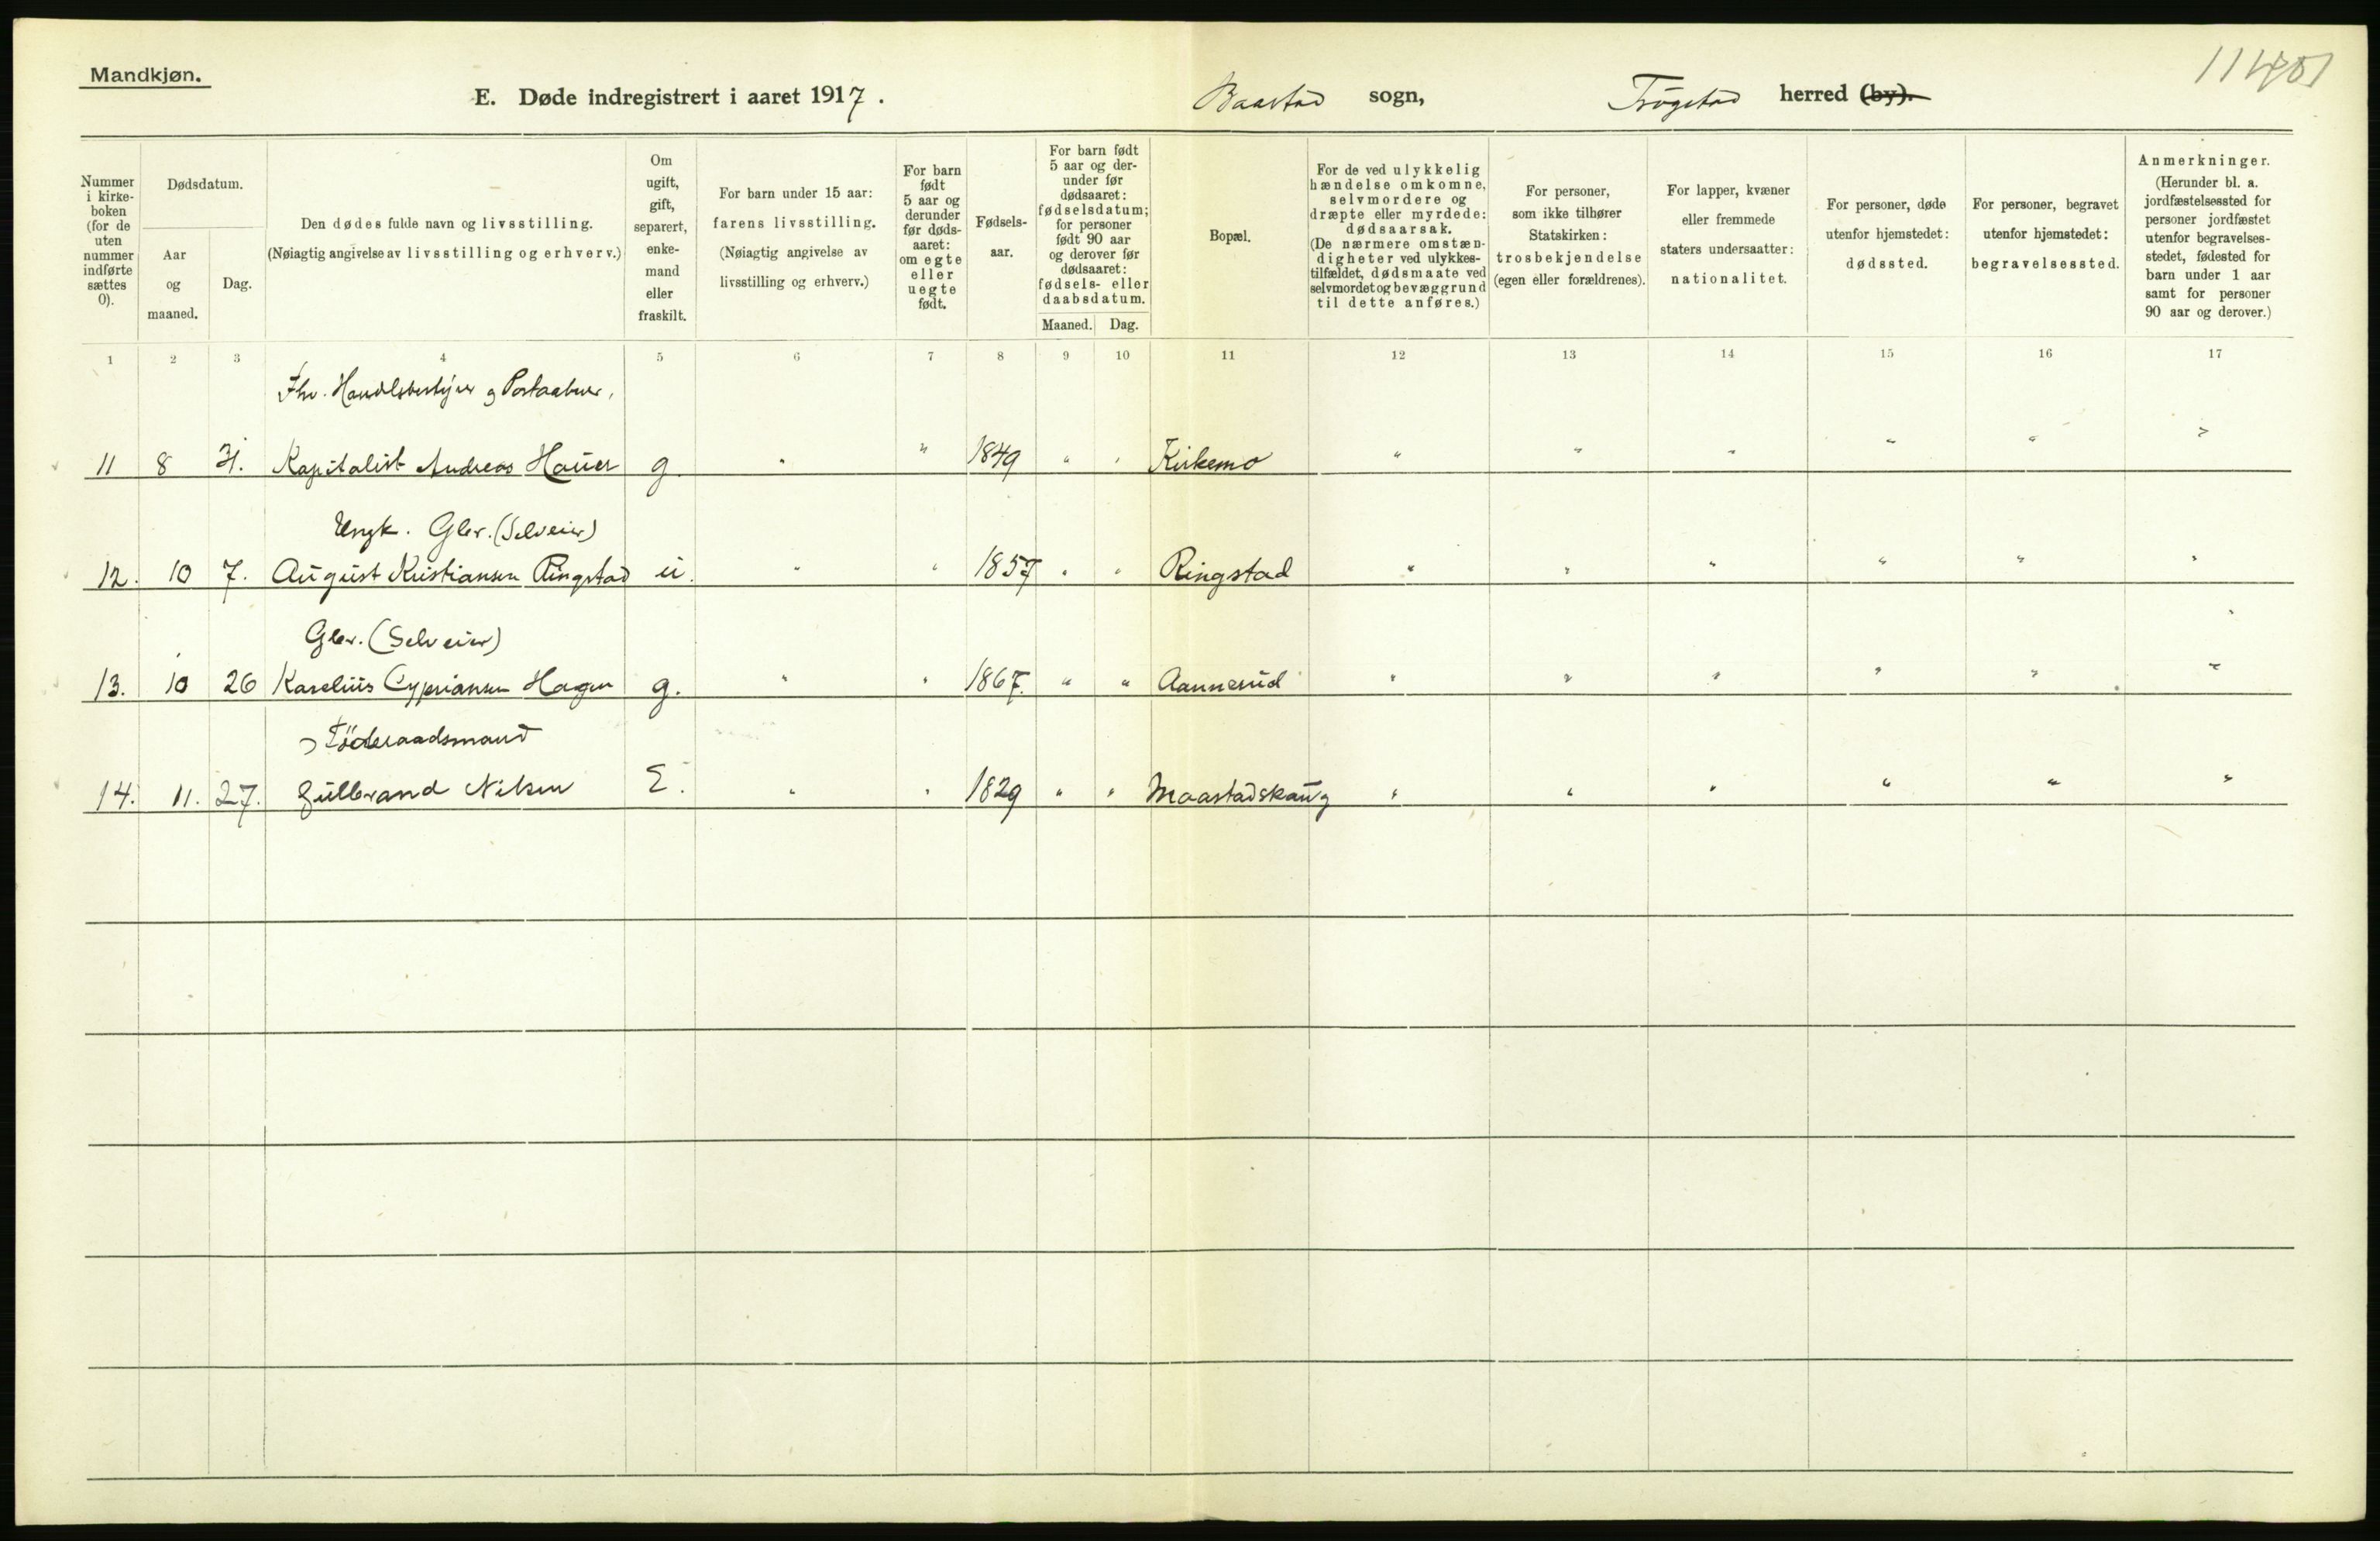 Mandkjøn.
E. Døde indregistrert i aaret 1917. Baastad sogn, Trøgstad herred (by).
Nummer i kirkeboken (for de uten nummer indførte sættes 0).
Dødsdatum.
Aar og maaned.
Dag.
Den dødes fulde navn og livsstilling.
(Nøiagtig angivelse av livsstilling og erhverv.)
Om ugift, gift, separert, enkemand eller fraskilt.
For barn under 15 aar:
farens livsstilling.
(Nøiagtig angivelse av livsstilling og erhverv.)
For barn født 5 aar og derunder før dødsaaret: om egte eller uegte født.
Fødselsaar.
For barn født 5 aar og derunder før dødsaaret: fødselsdatum; for personer født 90 aar og derover før dødsaaret: fødsels- eller daabsdatum.
Maaned. Dag.
Bopæl.
For de ved ulykkelig hændelse omkomne, selvmordere og dræpte eller myrdede: dødsaarsak.
(De nærmere omstændigheter ved ulykkestilfældet, dødsmaate ved selvmordet og bevæggrund til dette anføres.)
For personer, som ikke tilhører Statskirken: trosbekjendelse (egen eller forældrenes).
For lapper, kvæner eller fremmede staters undersaatter: nationalitet.
For personer, døde utenfor hjemstedet: dødssted.
For personer, begravet utenfor hjemstedet: begravelsessted.
Anmerkninger.
(Herunder bl. a. jordfæstelsessted for personer jordfæstet utenfor begravelsesstedet, fødested for barn under 1 aar samt for personer 90 aar og derover.)
1 2 3 4 5 6 7 8 9 10 11 12 13 14 15 16 17
Fhv. Handelsbestyrer og Postaabner,
11 8 31. Kapitalist Andreas Hauer g. " " 1849 " " Kirkemo " " " " " "
Ungk. Gbr. (Selveier)
12. 10 7. August Kristiansen Ringstad u. " " 1857 " " Ringstad " " " " " "
Gbr. (Selveier)
13. 10 26 Karelius Cypriansen Hagen g. " " 1867. " " Aannerud " " " " " "
Föderaadsmand
14. 11. 27. Gulbrand Nilsen E. " " 1829 " " Maastadskaug " " " " " "